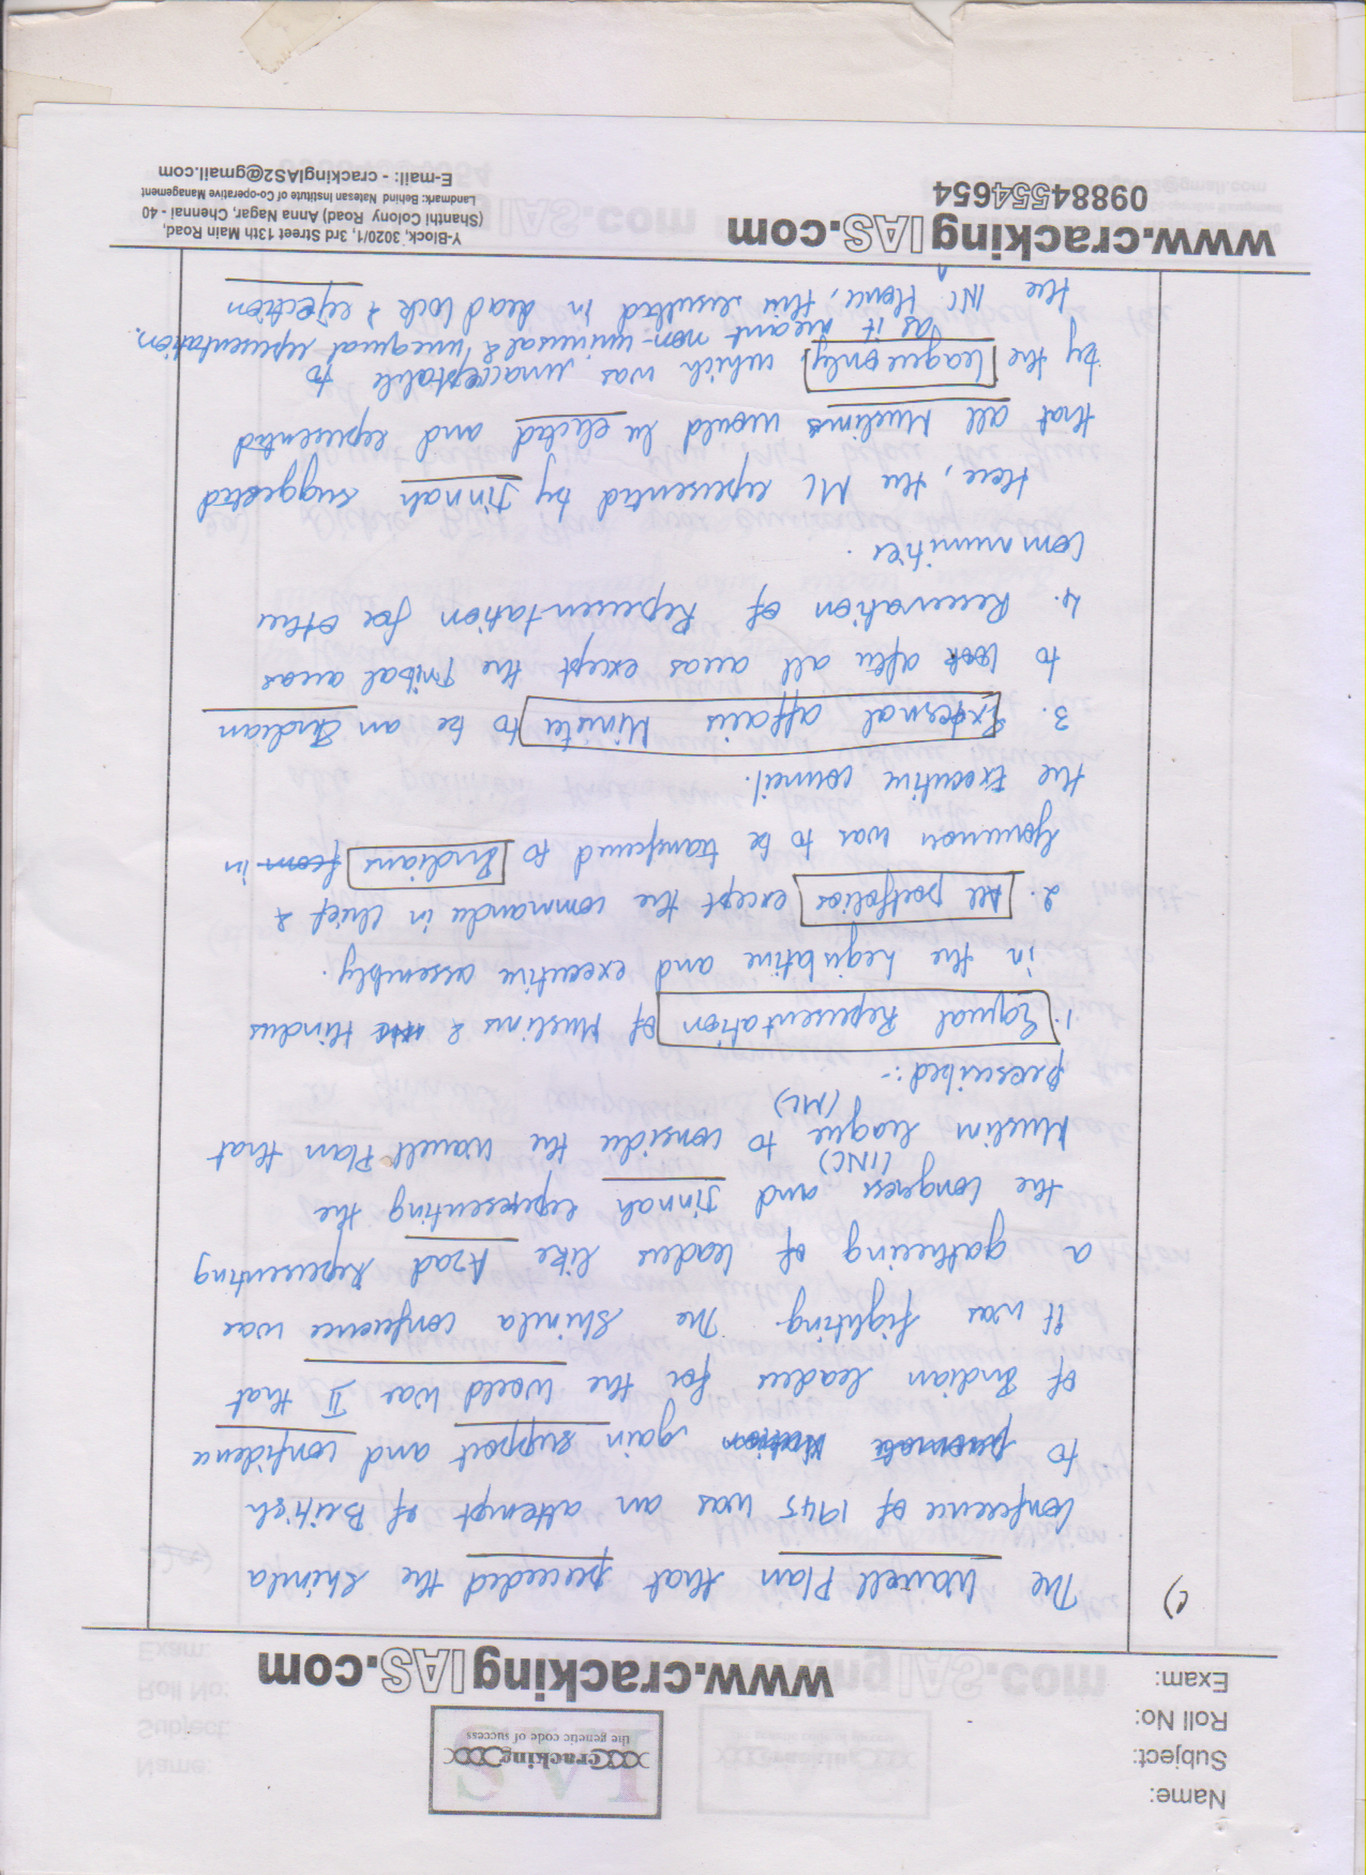 Name:
Subject:
Roll No:
Exam:
crackingIAS
the genetic code of success
www.crackingIAS.com
c) The Wavell Plan that preceded the Shimla
conference of 1945 was an attempt of British
to promote gain support and confidence
of Indian leaders for the World War II that
it was fighting. The Shimla conference was
a gathering of leaders like Azad representing
the Congress and Jinnah representing the
(INC)
Muslim League to consider the Wavell Plan that
(ML)
prescribed:-
1. Equal Representation of Muslims & Hindus
in the legislative and executive assembly.
2. All portfolios except the commander in chief &
Governor was to be transferred to Indians from in
the Executive council.
3. External affairs Minister to be an Indian
to look after all areas except the Tribal areas
4. Reservation of Representation for other
communities.
Here, the ML represented by Jinnah suggested
that all Muslims would be elected and represented
by the league only, which was unacceptable to
as it meant non-universal & unequal representation.
the INC. Hence, this resulted in dead lock & rejection
www.crackingIAS.com
09884554654
Y-Block, 3020/1, 3rd Street 13th Main Road,
(Shanthi Colony Road) Anna Nagar, Chennai - 40
Landmark: Behind Natesan Institute of Co-operative Management
E-mail: - crackingIAS2@gmail.com